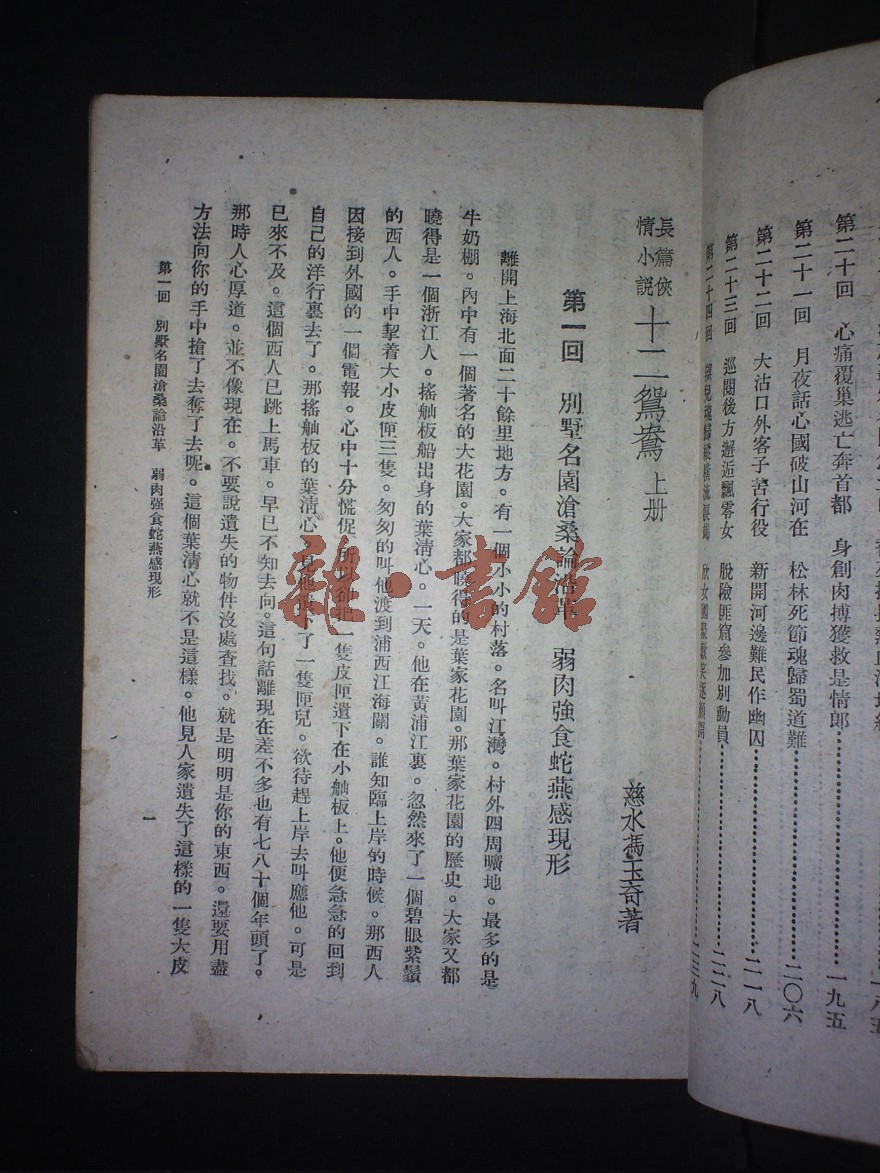 第二十回　心痛覆巢逃亡奔首都　身創肉搏獲救是情郎……一九五
第二十一回　月夜話心國破山河在　松林死節魂歸蜀道難……二〇六
第二十二回　大沽口外客子苦行役　新開河邊難民作幽囚……二一八
第二十三回　巡閱後方邂逅飄零女　脫險匪窟參加別動員……二二八
第二十四回……二三九
長篇俠情小說　十二鴛鴦　上册
慈水馮玉奇著
第一回　別墅名園滄桑論沿革　弱肉強食蛇燕感現形
離開上海北面二十餘里地方。有一個小小的村落。名叫江灣。村外四周曠地。最多的是
牛奶棚。內中有一個著名的大花園。大家都曉得的是葉家花園。那葉家花園的歷史。大家又都
曉得是一個浙江人。搖舢板船出身的葉清心。一天。他在黃浦江裏。忽然來了一個碧眼紫鬚
的西人。手中挈着大小皮匣三隻。匆匆的叫他渡到浦西江海關。誰知臨上岸的時候。那西人
因接到外國的一個電報。心中十分慌促。所以却把一隻皮匣遺下在小舢板上。他便急急的回到
自己的洋行裏去了。那搖舢板的葉清心。見他遺下了一隻匣兒。欲待趕上岸去叫應他。可是
已來不及。這個西人已跳上馬車。早已不知去向。這句話離現在差不多也有七八十個年頭了。
那時人心厚道。並不像現在。不要說遺失的物件沒處查找。就是明明是你的東西。還要用盡
方法向你的手中搶了去奪了去呢。這個葉清心就不是這樣。他見人家遺失了這樣的一隻大皮
第一回　別墅名園滄桑論沿革　弱肉強食蛇燕感現形
一
雜·書館